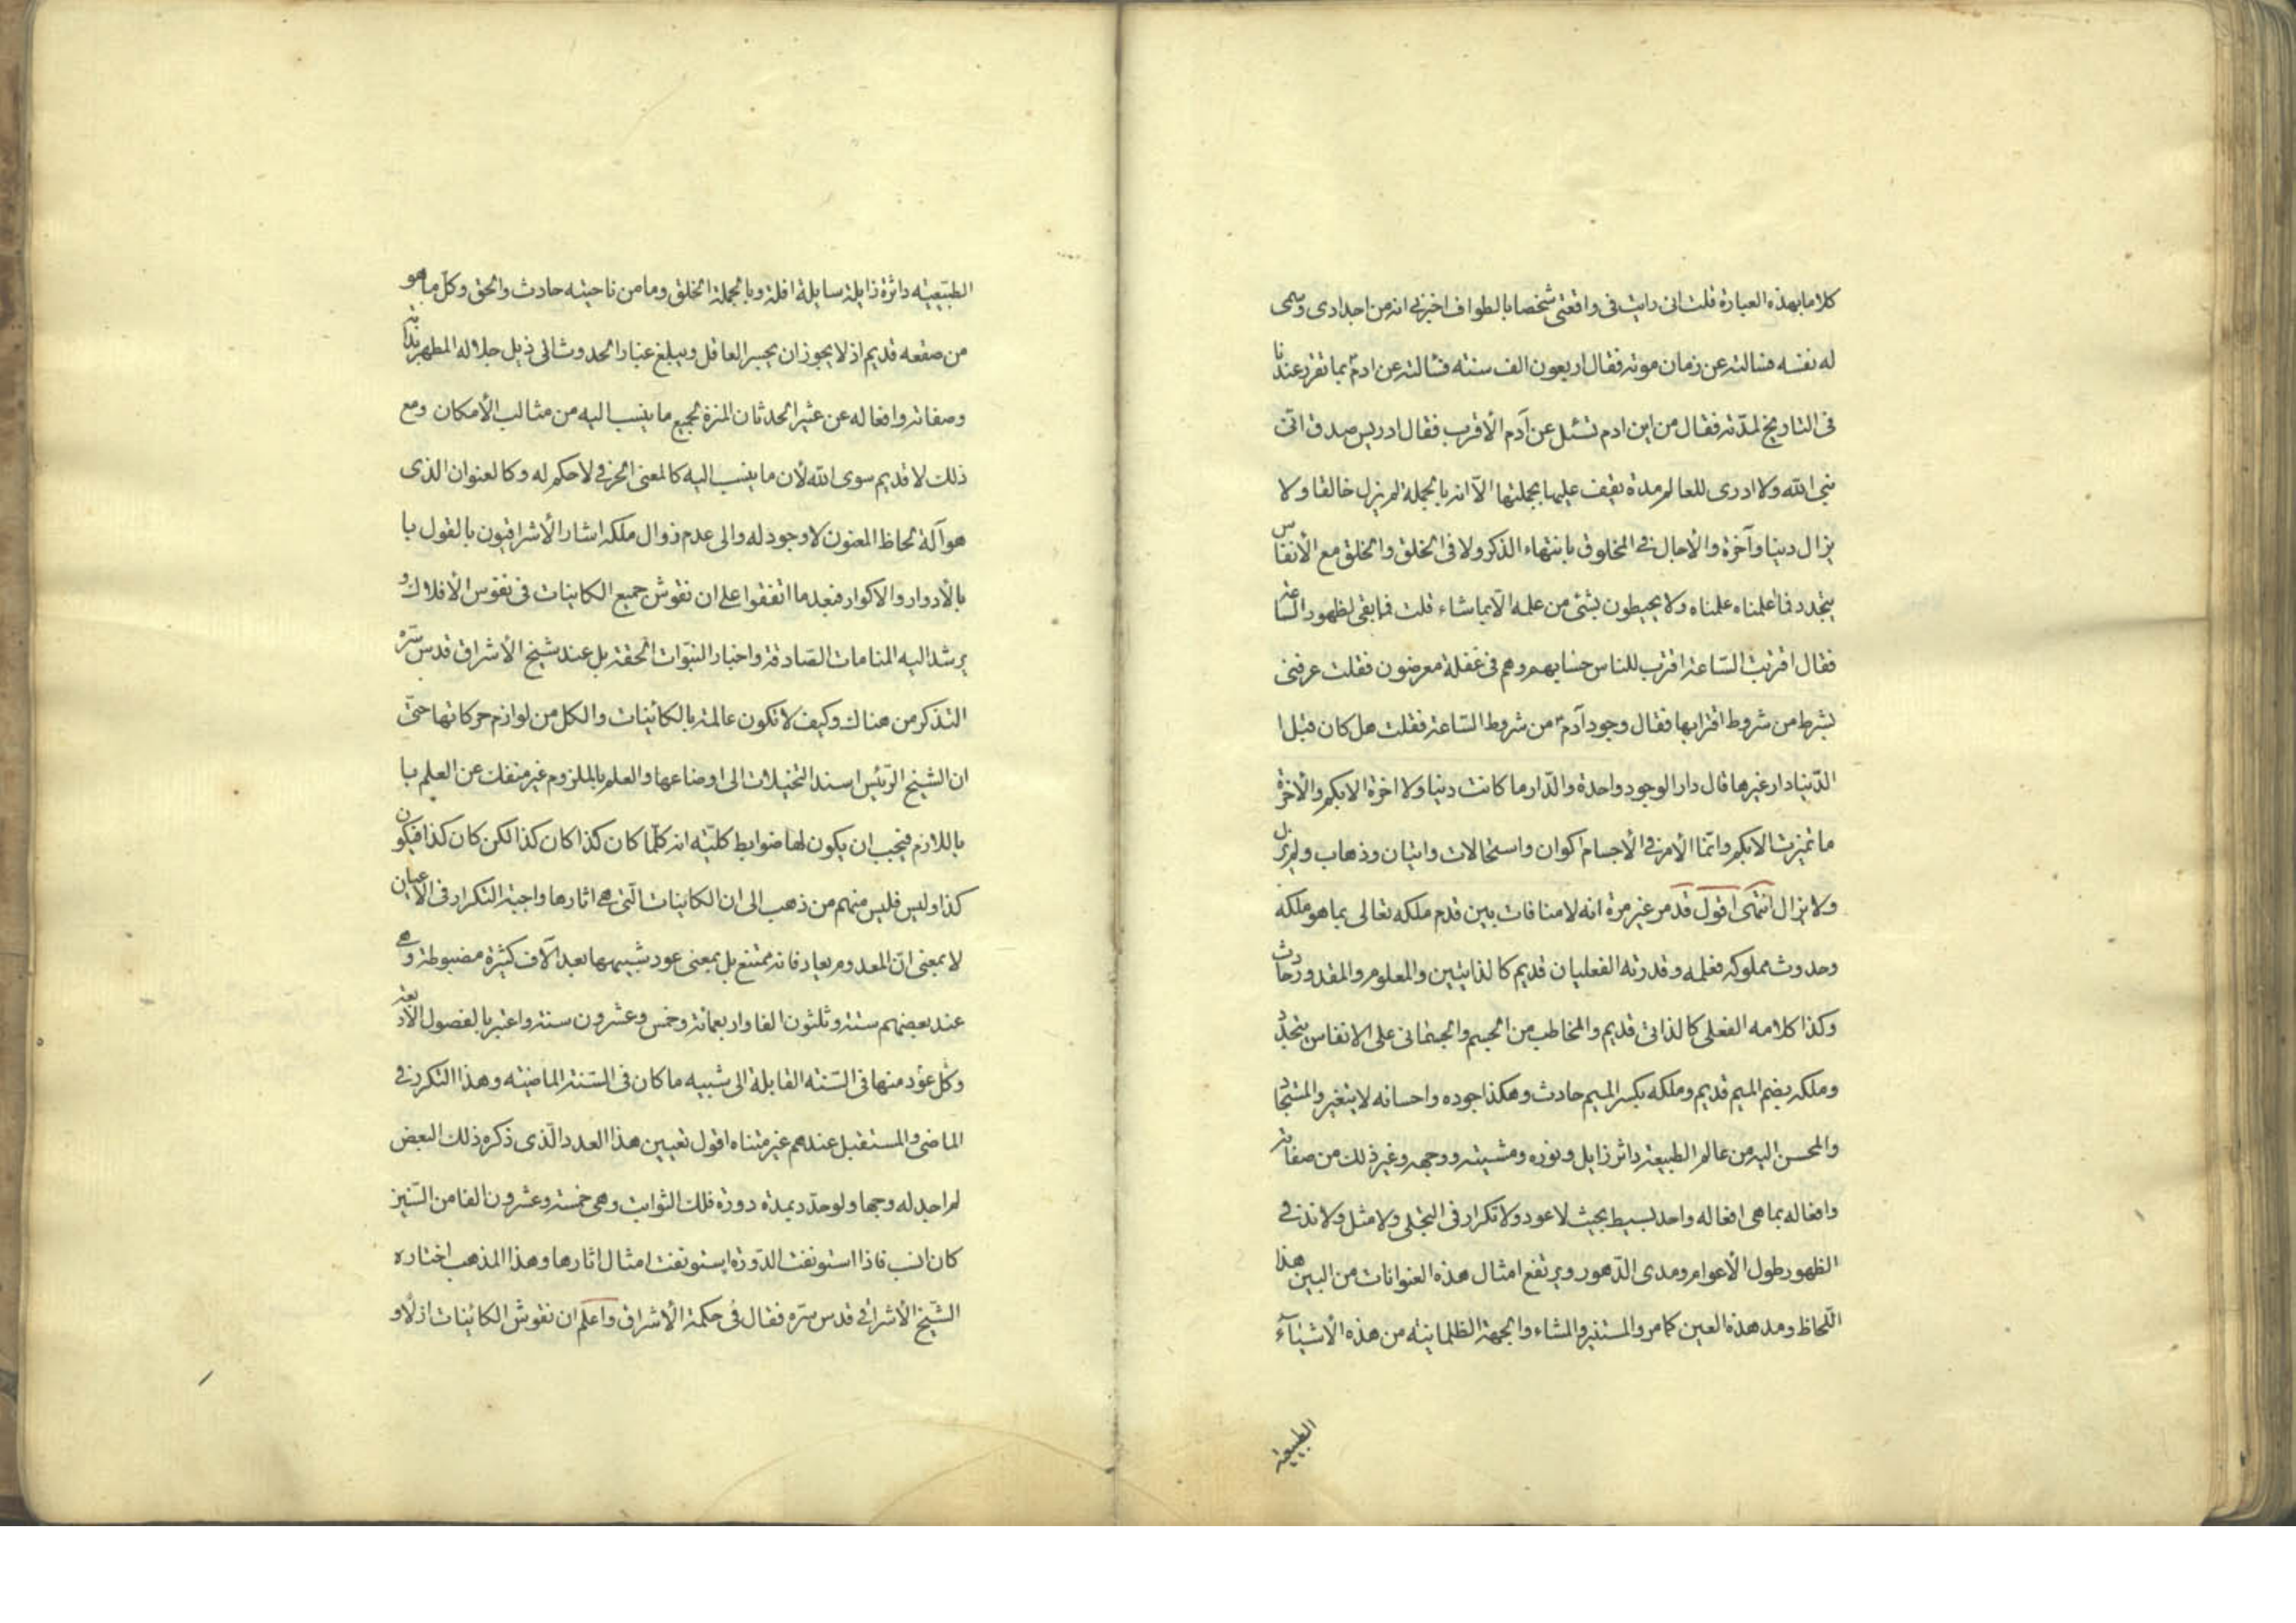 كلاما بهذه العبارة قلت انى رايت فى واقعتى شخصا بالطواف اخبرنى انه من اجدادى وسمى
له نفسه فسالته عن زمان موته فقال اربعون الف سنته فسالته عن ادمّ بما تقرر عندنا
فى التاريخ لمدّته فقال من اين ادم تسئل عن آدم الأقرب فقال ادريس صدق انّى
نبى الله ولا ادرى للعالم مدة يقف عليها بجملتها الّا انه بالجملة لم يزل خالقا ولا
يزال دنيا وآخرة والأجال فى المخلوق بانتهاء الذكر ولا فى الخلق والخلق مع الأنفاس
يتجدد فما علمناه علمناه ولا يحيطون بشئ من علمه الّا بما شاء قلت فما بقى لظهور الساعة
فقال اقتربت السّاعة اقترب للناس حسابهم وهم فى غفلة معرضون فقلت عرفنى
بشرط من شروط اقترابها فقال وجود آدمّ من شروط السّاعة فقلت هل كان قبل ا
الدّنيا دار غيرها قال دار الوجود واحدة والدّار ما كانت دنيا ولا اخرة الا بكم والأخرة
ما تميزت الا بكم وانّما الأمر فى الأجسام اكوان واستحالات واتيان وذهاب ولم يزل
ولا يزال انتهى اقول قد مر غير مرة انه لا منافات بين قدم ملكه تعالى بما هو ملكه
وحدوث مملوكه فعلمه وقدرته الفعليان قديم كالذاتيين والمعلوم والمقدور حادث
وكذا كلامه الفعلى كالذاتى قديم والمخاطب من الجسم والجسمانى على الانفاس يتجدّد
وملكه بضم الميم قديم وملكه بكسر الميم حادث وهكذا جوده واحسانه لا يتغير والمستجاد
والمحسن اليه من عالم الطبيعة داثر زايل ونوره ومشيته ووجهه وغير ذلك من صفاته
وافعاله بما هى افعاله واحد بسيط بحيث لا عود ولا تكرار فى التجلى ولا مثل ولا ند فى
الظهور طول الأعوام ومدى الدّهور ويرتفع امثال هذه العنوانات من البين هذا
اللّحاظ ومد هذه العين كما مر والمستنير والمشاء والجهة الظلمانية من هذه الأشياء
الطبيعيّة
الطبيعيّه داثرة زايلة سايلة افلة وبالجملة الخلق وما من ناحيته حادث والحق وكلّ ما هو
من صقعه قديم اذ لا يجوز ان يجسر العاقل ويبلغ غبار الحدوث الى ذيل جلاله المطهر بذاته
وصفاته وافعاله عن عثير الحدثان المنزة لجميع ما ينسب اليه من مثالب الأمكان ومع
ذلك لا قديم سوى الله لأن ما ينسب اليه كالمعنى الحرفى لا حكم له وكالعنوان الذى
هو آلة لحاظ المعنون لا وجود له والى عدم زوال ملكه اشار الأشراقيون بالقول با
بالأدوار والاكوار فبعد ما اتفقوا على ان نقوش جميع الكاينات فى نفوس الأفلاك و
يرشد اليه المنامات الصّادقة واخبار النبّوات الحقة بل عند شيخ الأشراق قدس سرّه
التذكر من هناك وكيف لا تكون عالمة بالكائينات والكل من لوازم حركاتها حتّى
ان الشيخ الرّئيس اسند التخيلات الى اوضاعها والعلم بالملزوم غير منفك عن العلم با
باللازم فيجب ان يكون لها ضوابط كليّه انه كلّما كان كذا كان كذا لكن كان كذا فيكون
كذا وليس فليس منهم من ذهب الى ان الكاينات الّتى هى اثارها واجبة التكرار فى الاعيان
لا بمعنى انّ المعدوم يعاد فانه ممتنع بل بمعنى عود شبيهها بعد آلاف كثيرة مضبوطة وهى
عند بعضهم ستة وثلثون الفا واربعمائة وخمس وعشرون سنة واعتبر بالفصول الأربعة
وكل عؤد منها فى السّنه القابلة الى شبيه ما كان فى السّنة الماضيّه وهذا التكرر فى
الماضى والمستقبل عندهم غير متناه اقول تعيين هذا العدد الّذى ذكره ذلك البعض
لم اجد له وجها ولو حدّد بمدة دورة فلك الثوابت وهى خمسة وعشرون الفا من السّنين
كان انسب فاذا استونفت الدّورة استونفت امثال اثارها وهذا المذهب اختاره
الشّيخ الأشراقى قدس سرّه فقال فى حكمة الأشراق واعلم ان نقوش الكائينات ازلا و